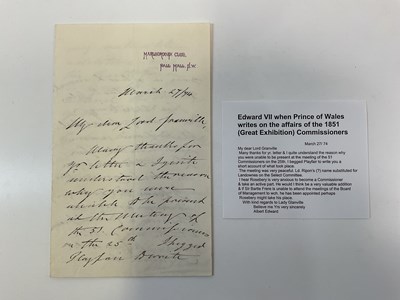 MARLBOROUGH CLUB,
PALL MALL. S.W.
March 27/74
My dear Lord Granville,
Many thanks for
yr letter & I quite
understand the reason
why you were
unable to be present
at the Meeting of
the 51 Commissioners
on the 25th. I begged
Playfair to write
Edward VII when Prince of Wales
writes on the affairs of the 1851
(Great Exhibition) Commissioners
March 27/ 74
My dear Lord Granville
Many thanks for yr. letter & I quite understand the reason why
you were unable to be present at the meeting of the 51
Commissioners on the 25th. I begged Playfair to write you a
short account of what took place.
The meeting was very peaceful. Ld. Ripon's (?) name substituted for
Landsdownes on the Select Committee.
I hear Rosebery is very anxious to become a Commissioner
& take an active part. He would I think be a very valuable addition
& if Sir Bartle Frere is unable to attend the meetings of the Board
of Management to wch. he has been appointed perhaps
Rosebery might take his place.
With kind regards to Lady Granville
Believe me Yrs very sincerely
Albert Edward